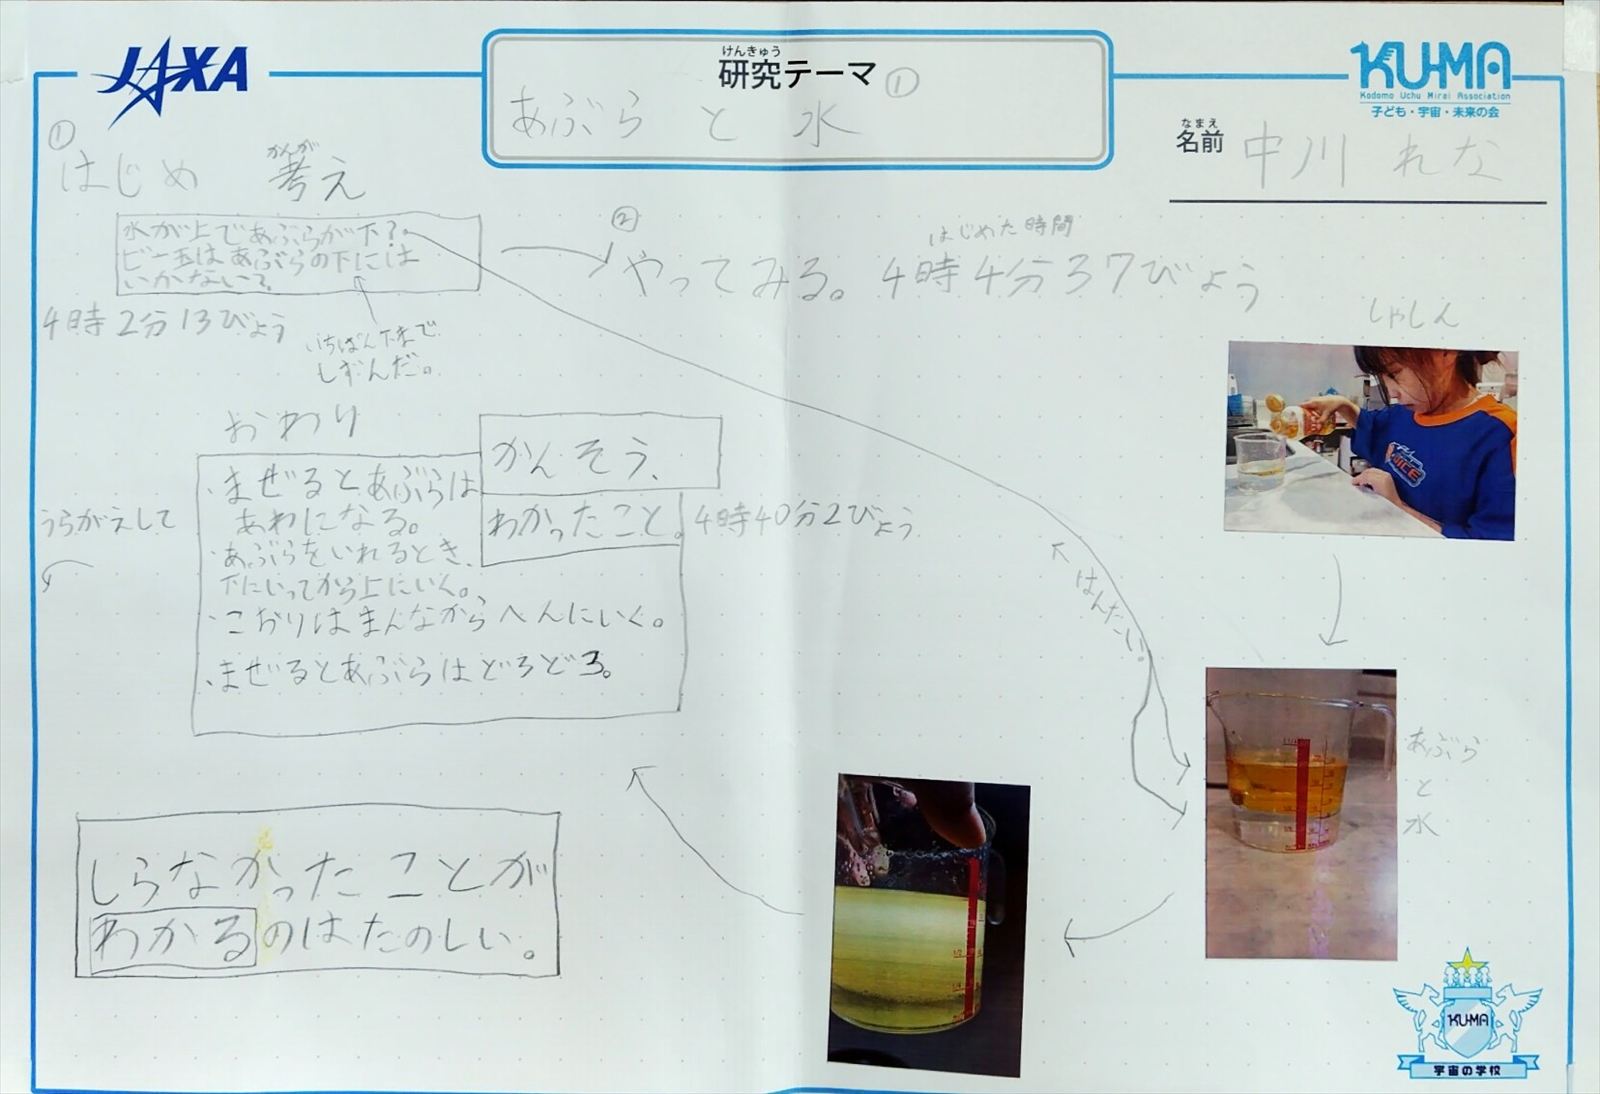 JAXA
けんきゅう
研究テーマ ①
あぶら と 水
KU-MA
Kodomo Uchu Mirai Association
子ども・宇宙・未来の会
なまえ
名前 中川 れな
①
はじめ 考え
かんが
水が上であぶらが下?
ビー玉はあぶらの下には
いかない?
4時2分13びょう
いちばん下まで
しずんだ。
②
やってみる。
はじめた時間
4時4分37びょう
しゃしん
おわり
かんそう、
わかったこと。
4時40分2びょう
・まぜるとあぶらは
あわになる。
・あぶらをいれるとき、
下にいってから上にいく。
・こおりはまんなからへんにいく。
・まぜるとあぶらはどろどろ。
うらがえして
はんたい。
あぶら
と
水
しらなかったことが
わかるのはたのしい。
KU-MA
宇宙の学校